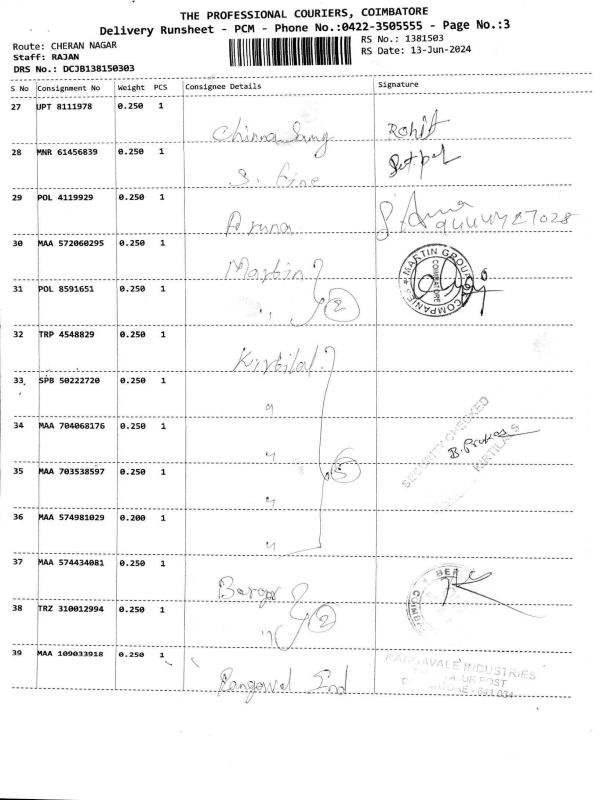 THE PROFESSIONAL COURIERS, COIMBATORE
Delivery Runsheet - PCM - Phone No.:0422-3505555 - Page No.:3
Route: CHERAN NAGAR
RS No.: 1381503
Staff: RAJAN
RS Date: 13-Jun-2024
DRS No.: DCJB138150303
S No Consignment No Weight PCS Consignee Details Signature
27 UPT 8111978 0.250 1
Rohit
28 MNR 61456839 0.250 1
S. Fine
29 POL 4119929 0.250 1
Aruna
30 MAA 572060295 0.250 1
Martin
MARTIN GROUP OF COMPANIES
COIMBATORE
31 POL 8591651 0.250 1
" 2
32 TRP 4548829 0.250 1
Kirtilal
33 SPB 50222720 0.250 1
"
34 MAA 704068176 0.250 1
"
SECURITY CHECKED
B. Prakas
KIRTILALS
35 MAA 703538597 0.250 1
" 5
36 MAA 574981029 0.200 1
"
37 MAA 574434081 0.250 1
38 TRZ 310012994 0.250 1
" 2
39 MAA 109033918 0.250 1
INDUSTRIES
POST